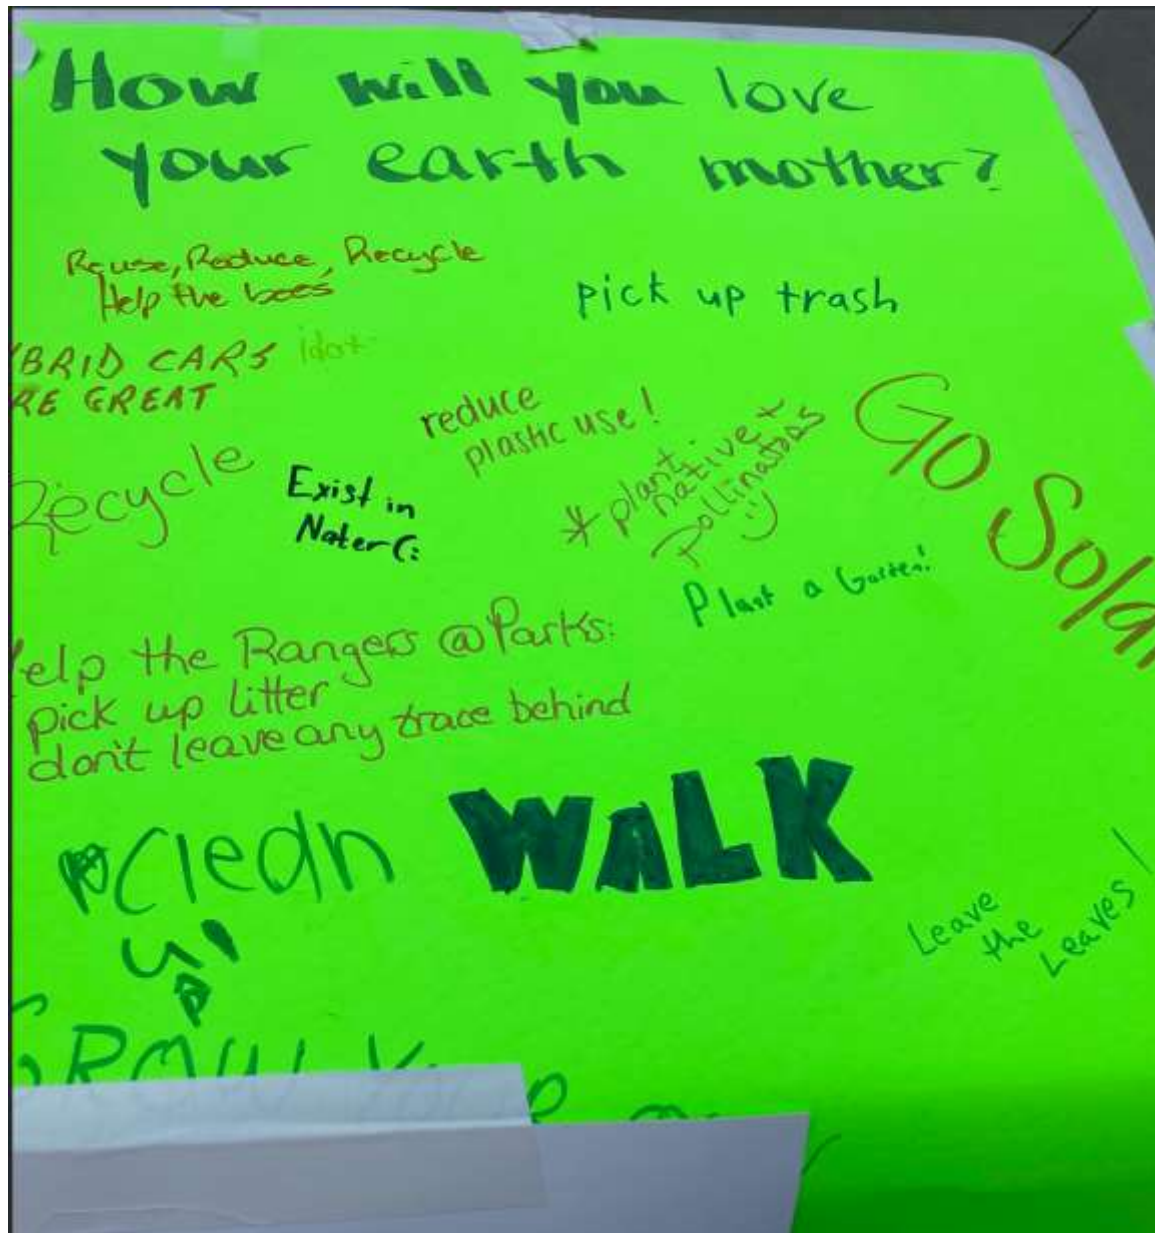 How will you love
your earth mother?
Reuse, Reduce, Recycle
Help the bees
pick up trash
BRID CARS
RE GREAT
reduce
plastic use!
* plant
native +
pollinators
:)
GO Solar
Recycle
Exist in
Nater (:
Plant a Garten!
elp the Rangers @ Parks:
pick up litter
don't leave any trace behind
Clean
up
WaLK
Leave
the
Leaves!
GROW